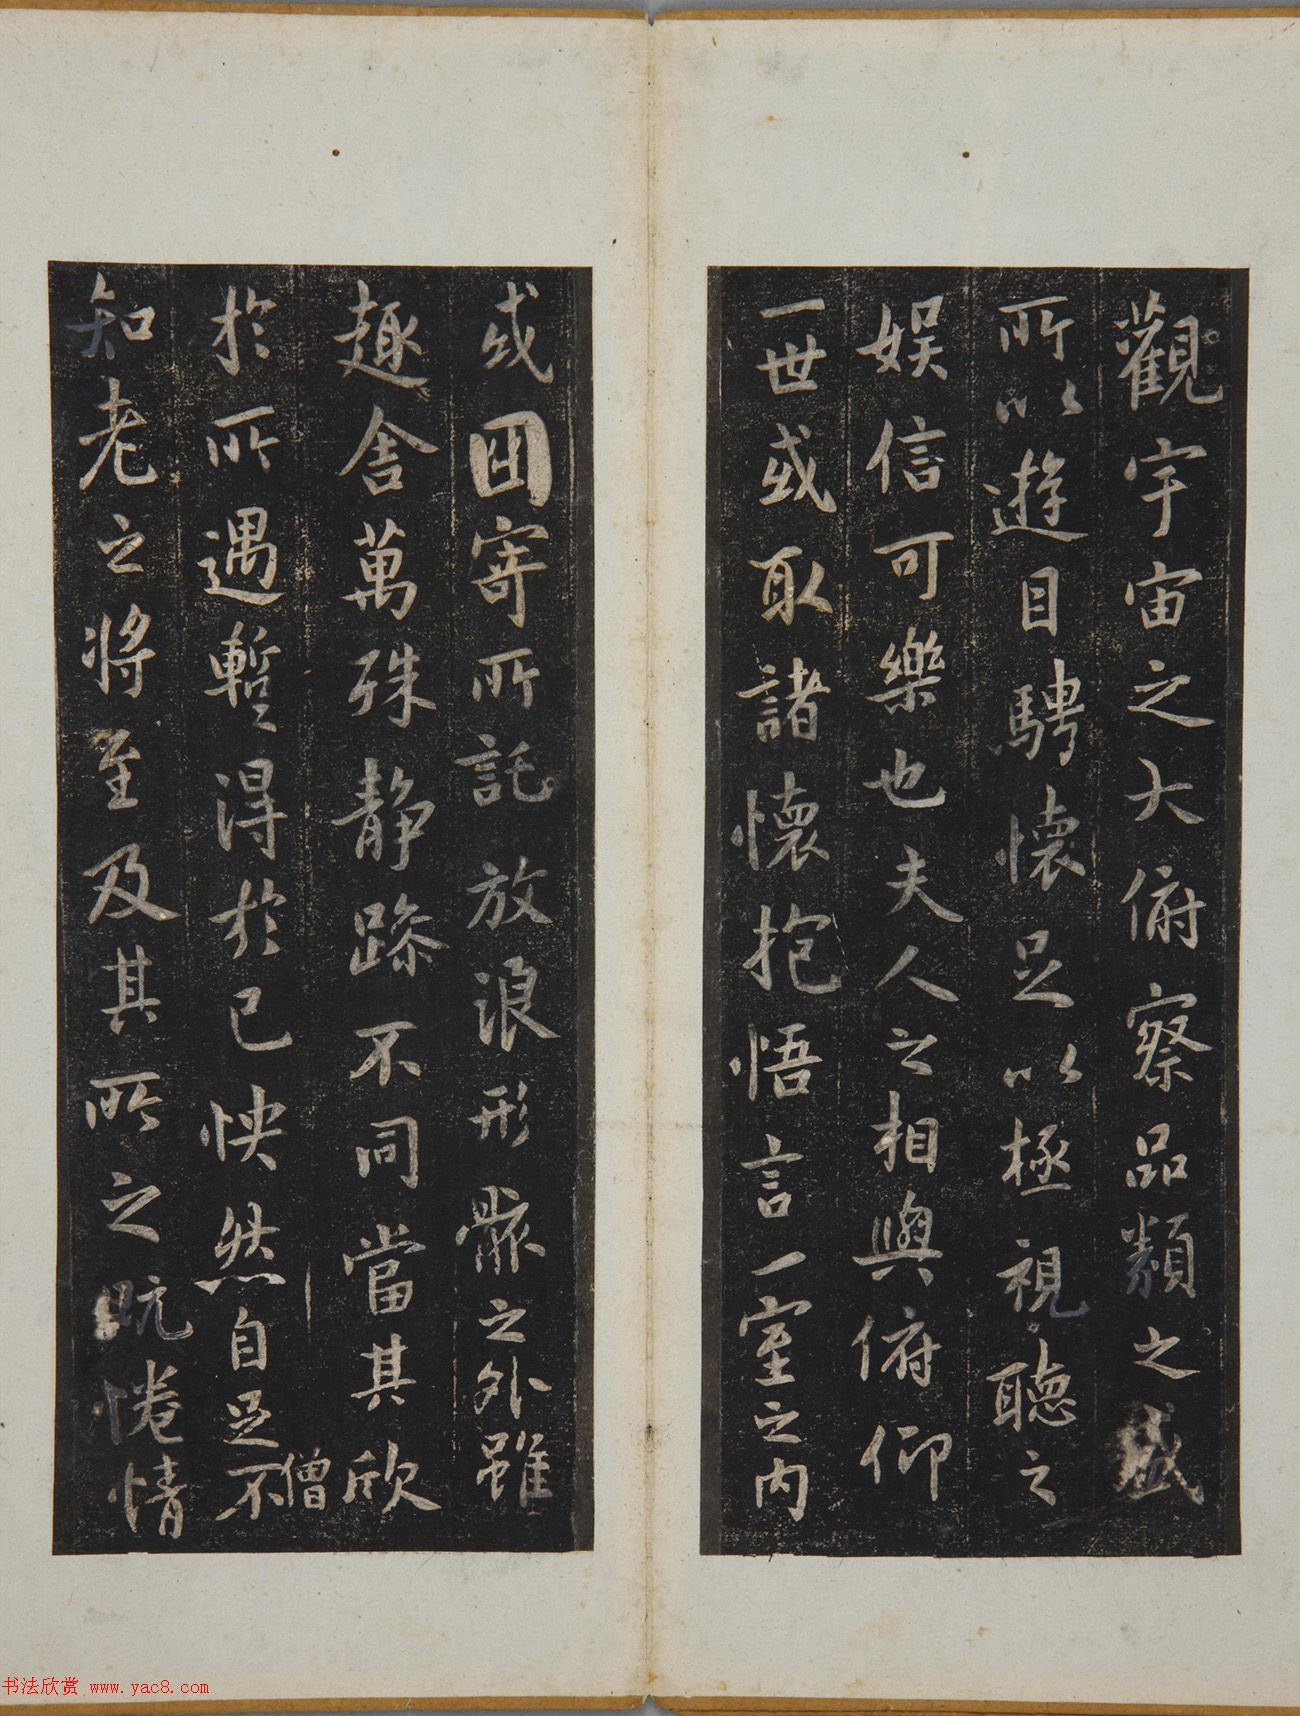 觀宇宙之大俯察品類之盛
所以遊目騁懷足以極視聽之
娛信可樂也夫人之相與俯仰
一世或取諸懷抱悟言一室之内
或因寄所託放浪形骸之外雖
趣舍萬殊静躁不同當其欣
於所遇暫得於己怏然自足不
僧
知老之將至及其所之既惓情
书法欣赏 www.yac8.com